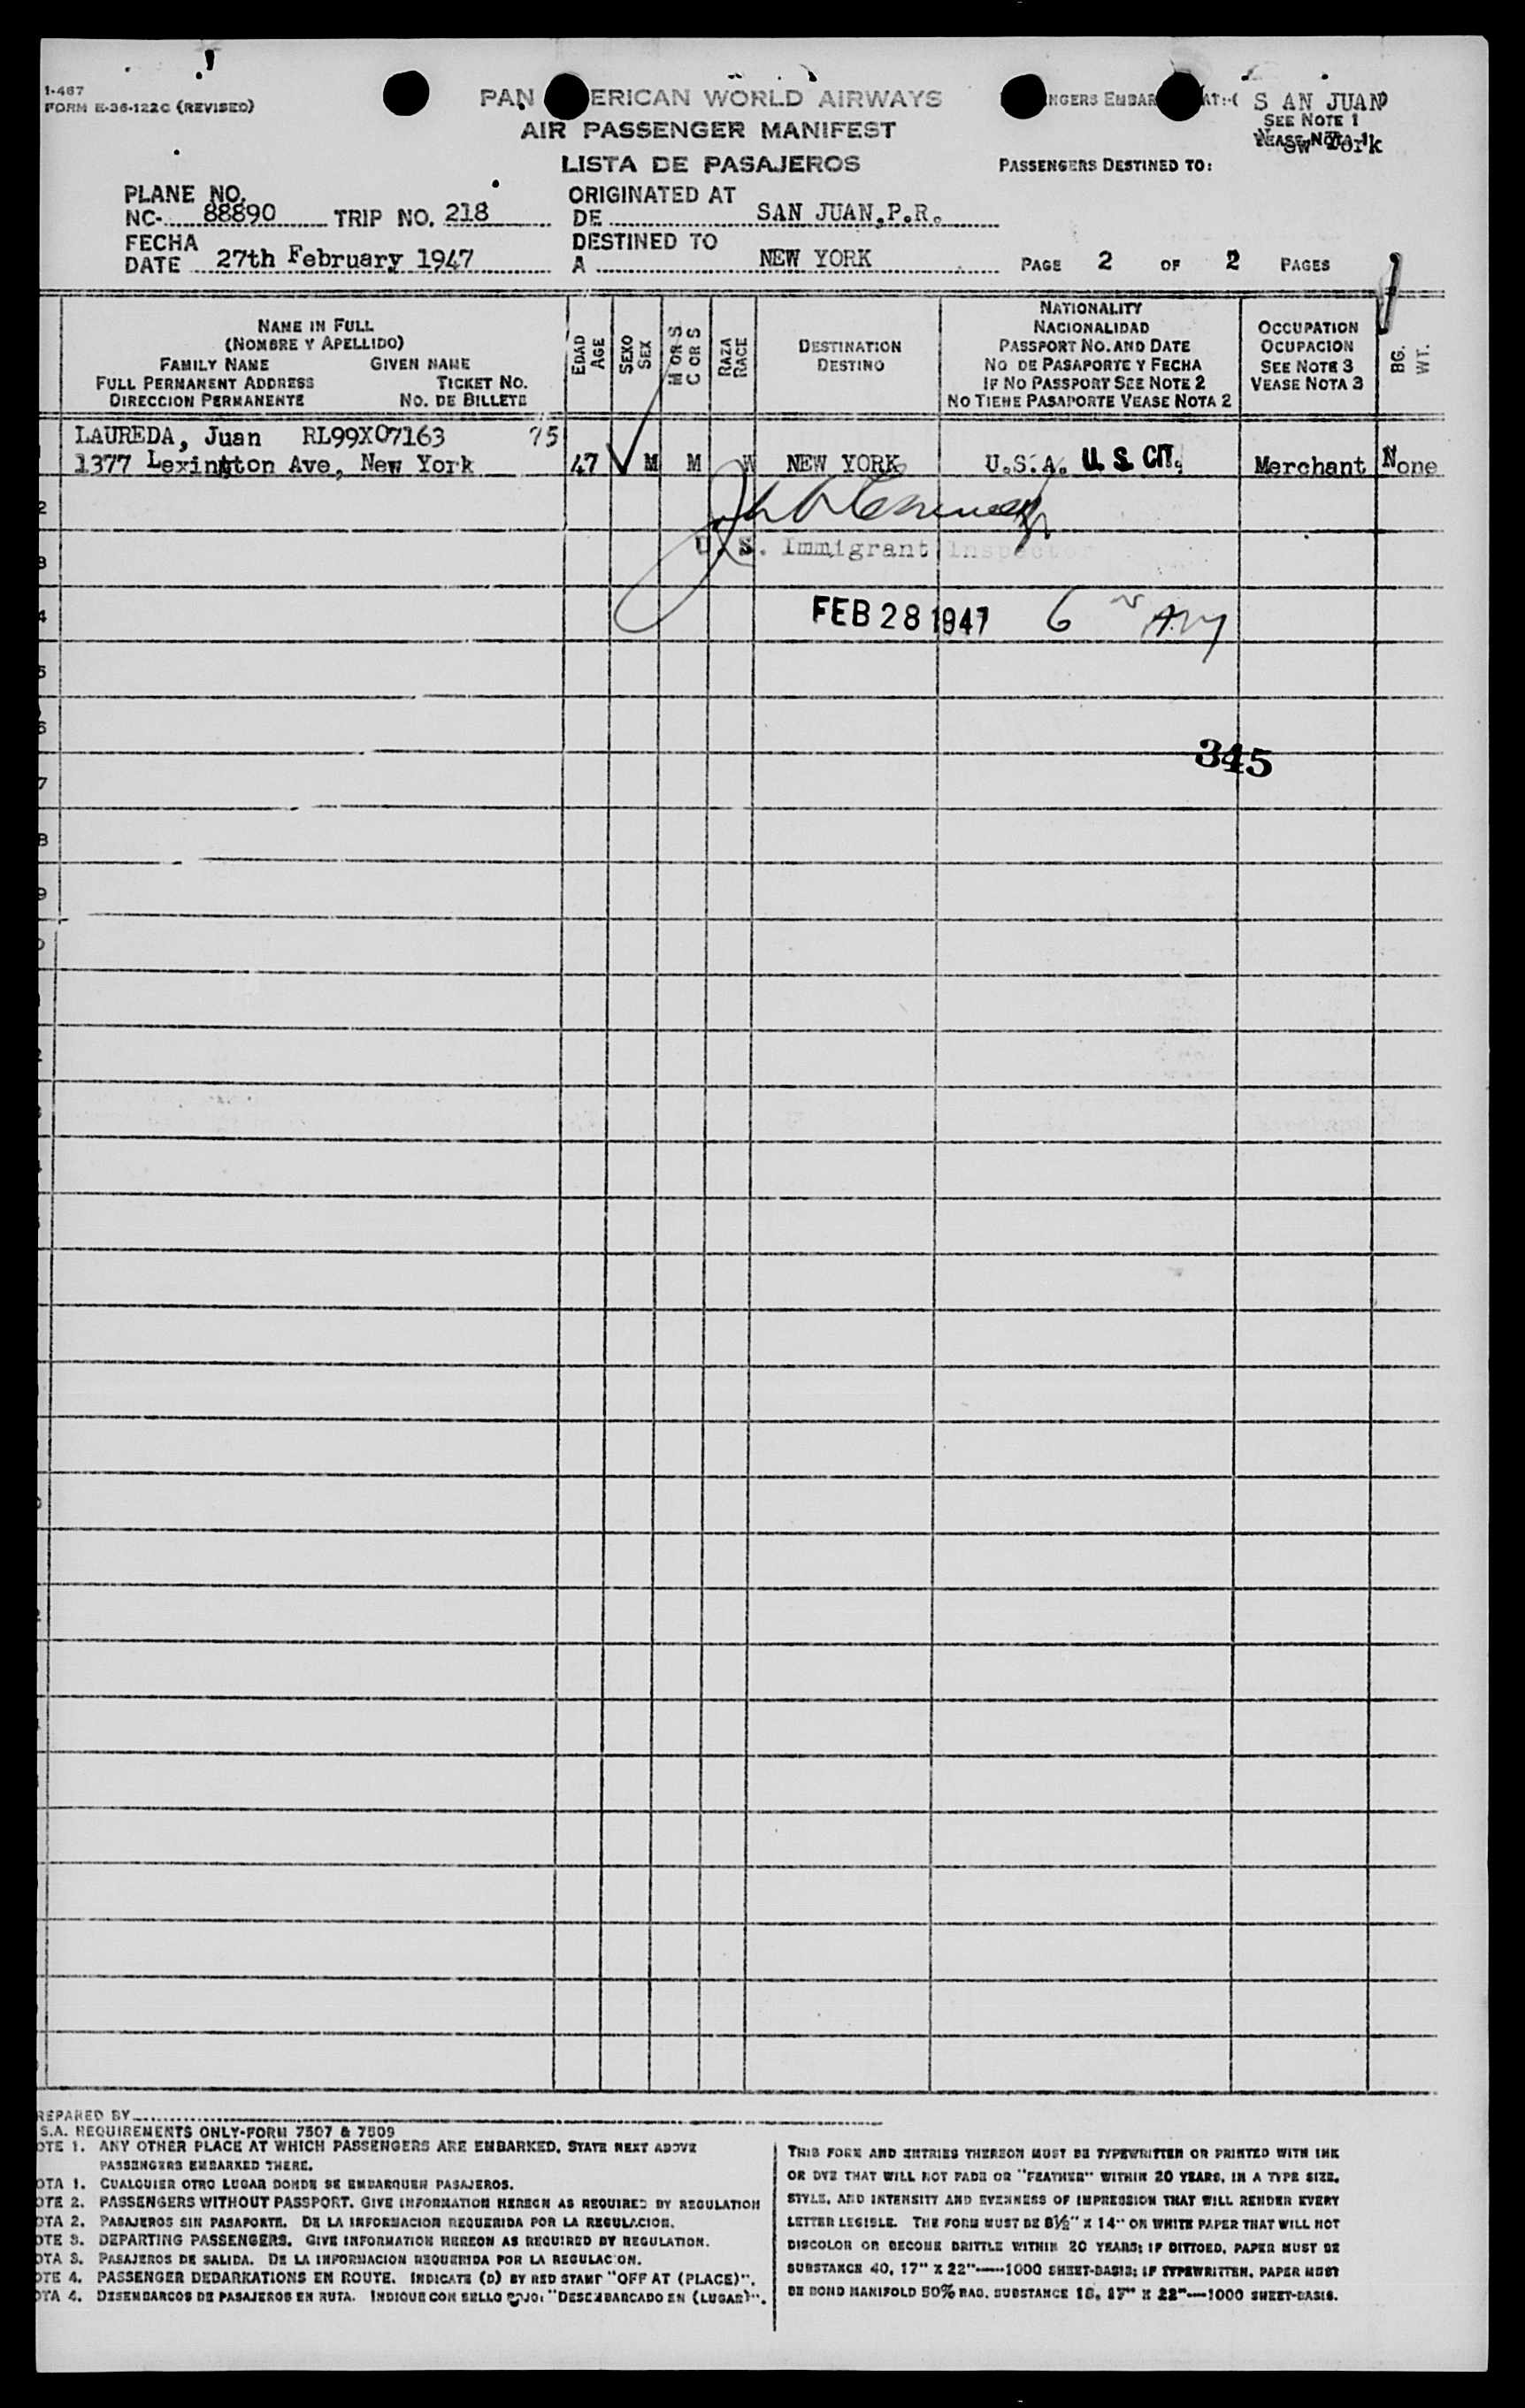 1-467
FORM E-36-122C (REVISED)
PAN ERICAN WORLD AIRWAYS
AIR PASSENGER MANIFEST
LISTA DE PASAJEROS
NGERS EMBAR AT:-( S AN JUAN)
SEE NOTE 1
VEASE NOTA 1
PASSENGERS DESTINED TO: New York
PLANE NO.
NC- 88890 TRIP NO. 218
ORIGINATED AT
DE SAN JUAN, P.R.
FECHA
DATE 27th February 1947
DESTINED TO
A NEW YORK
PAGE 2 OF 2 PAGES
NAME IN FULL
(NOMBRE Y APELLIDO)
FAMILY NAME GIVEN NAME
FULL PERMANENT ADDRESS TICKET NO.
DIRECCION PERMANENTE NO. DE BILLETE
EDAD
AGE
SEXO
SEX
M OR S
C OR S
RAZA
RACE
DESTINATION
DESTINO
NATIONALITY
NACIONALIDAD
PASSPORT NO. AND DATE
NO DE PASAPORTE Y FECHA
IF NO PASSPORT SEE NOTE 2
NO TIENE PASAPORTE VEASE NOTA 2
OCCUPATION
OCUPACION
SEE NOTE 3
VEASE NOTA 3
BG.
WT.
LAUREDA, Juan RL99X07163 75
1377 Lexington Ave, New York 47 M M W NEW YORK U.S.A. U. S. CIT. Merchant None
2
U. S. Immigrant Inspector
3
4
FEB 28 1947 6
5
6
345
7
8
9
REPARED BY
S.A. REQUIREMENTS ONLY-FORM 7507 & 7509
OTE 1. ANY OTHER PLACE AT WHICH PASSENGERS ARE EMBARKED, STATE NEXT ABOVE
PASSENGERS EMBARKED THERE.
OTA 1. CUALQUIER OTRO LUGAR DONDE SE EMBARQUEN PASAJEROS.
OTE 2. PASSENGERS WITHOUT PASSPORT. GIVE INFORMATION HEREON AS REQUIRED BY REGULATION
OTA 2. PASAJEROS SIN PASAPORTE. DE LA INFORMACION REQUERIDA POR LA REGULACION.
OTE 3. DEPARTING PASSENGERS. GIVE INFORMATION HEREON AS REQUIRED BY REGULATION.
OTA 3. PASAJEROS DE SALIDA. DE LA INFORMACION REQUERIDA POR LA REGULACION.
OTE 4. PASSENGER DEBARKATIONS EN ROUTE. INDICATE (D) BY RED STAMP "OFF AT (PLACE)".
OTA 4. DISEMBARCOS DE PASAJEROS EN RUTA. INDIQUE CON SELLO ROJO: "DESEMBARCADO EN (LUGAR)".
THIS FORM AND ENTRIES THEREON MUST BE TYPEWRITTEN OR PRINTED WITH INK
OR DYE THAT WILL NOT FADE OR "FEATHER" WITHIN 20 YEARS, IN A TYPE SIZE,
STYLE, AND INTENSITY AND EVENNESS OF IMPRESSION THAT WILL RENDER EVERY
LETTER LEGIBLE. THE FORM MUST BE 8½" X 14" ON WHITE PAPER THAT WILL NOT
DISCOLOR OR BECOME BRITTLE WITHIN 20 YEARS; IF DITTOED, PAPER MUST BE
SUBSTANCE 40, 17" X 22"——1000 SHEET-BASIS; IF TYPEWRITTEN, PAPER MUST
BE BOND MANIFOLD 50% RAG. SUBSTANCE 16, 17" X 22"——1000 SHEET-BASIS.